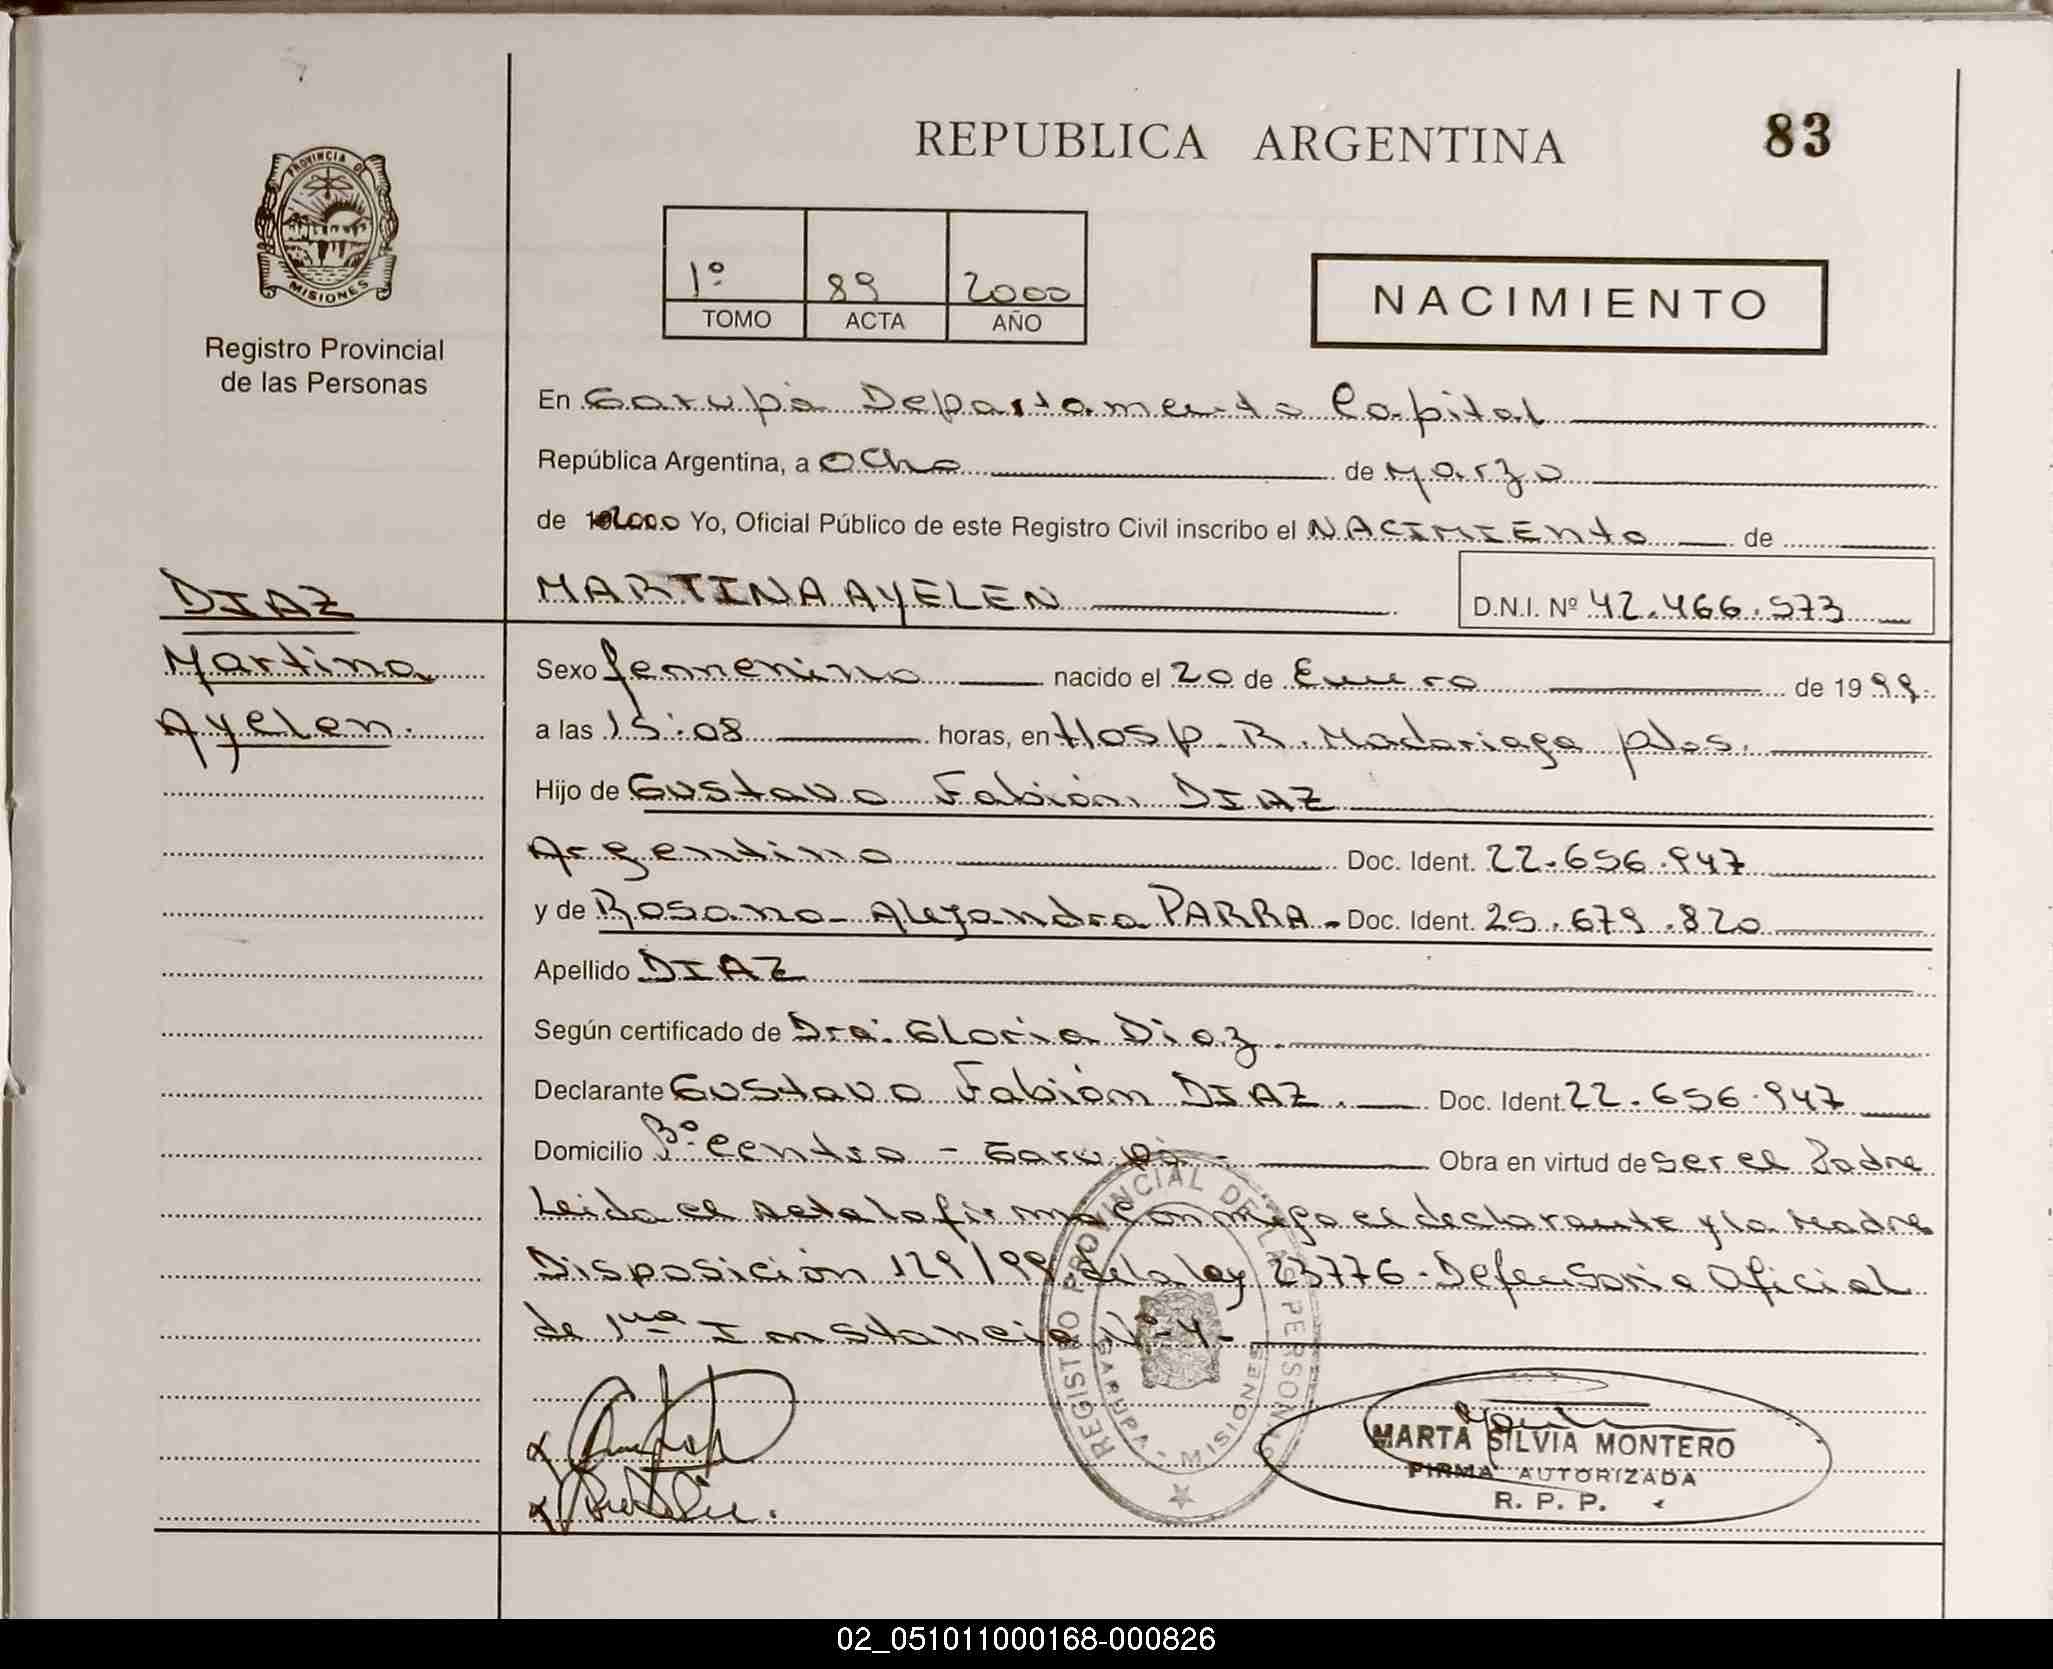 REPUBLICA ARGENTINA
83
PROVINCIA DE
MISIONES
Registro Provincial
de las Personas
1º 89 2000
TOMO ACTA AÑO
NACIMIENTO
En Garupá Departamento Capital
República Argentina, a Ocho de Marzo
de 2000 Yo, Oficial Público de este Registro Civil inscribo el NACIMIENto de
MARTINA AYELEN
D.N.I. Nº 42.466.573
DIAZ
Martina
Ayelen.
Sexo femenino nacido el 20 de Enero de 1999.
a las 15:08 horas, en Hosp. R. Madariaga pdas.
Hijo de Gustavo Fabián DIAZ
Argentino Doc. Ident. 22.656.947
y de Rosana Alejandra PARRA - Doc. Ident. 25.679.820
Apellido DIAZ
Según certificado de Dra. Gloria Diaz.
Declarante Gustavo Fabián DIAZ. Doc. Ident. 22.656.947
Domicilio Bº Centro - Garupá - Obra en virtud de ser el Padre
Leida el Acta la firma conmigo el declarante y la Madre
Disposición 129/99 de la ley 23776 - Defensoria Oficial
de 1era Instancia Nº 4.
REGISTRO PROVINCIAL DE LAS PERSONAS
GARUPA - MISIONES
MARTA SILVIA MONTERO
FIRMA AUTORIZADA
R. P. P.
02_051011000168-000826